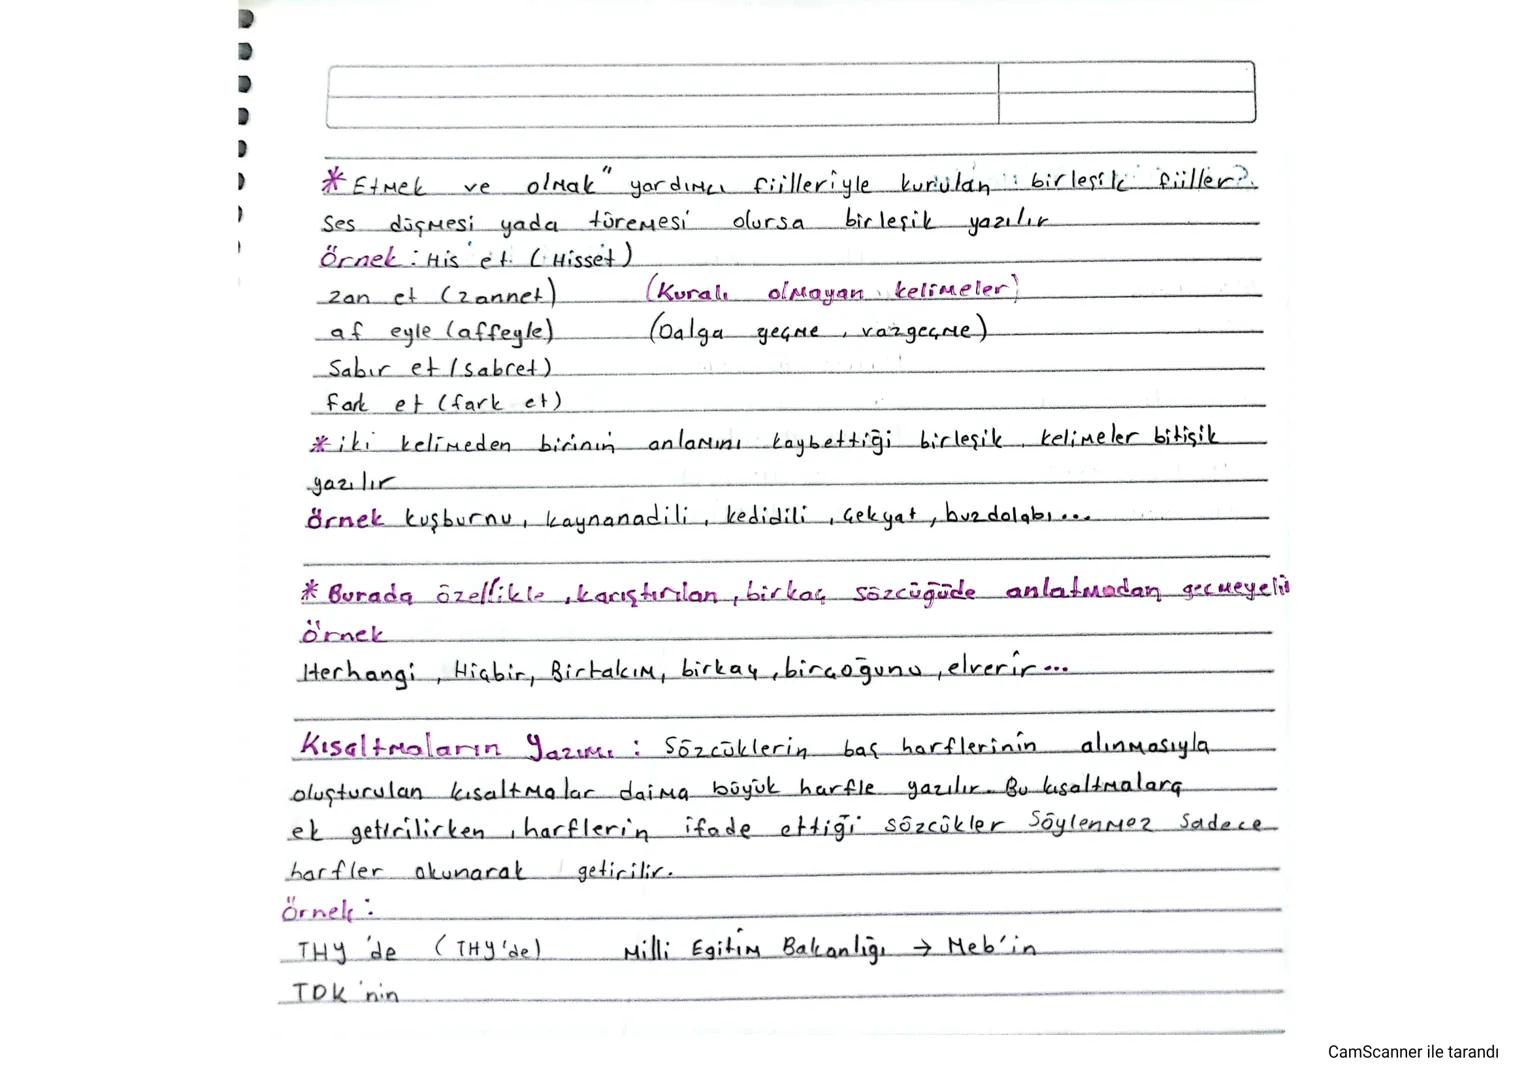 * Etmek ve olmak" yardımcı fiilleriyle kurulan birleşik fiiller?
Ses düşmesi yada türemesi olursa birleşik yazılır
Örnek : His et (Hisset)
zan et (zannet) (Kuralı olmayan kelimeler)
af eyle (affeyle) (Dalga geçme, vazgeçme)
Sabır et (sabret)
fark et (fark et)
* iki kelimeden birinin anlamını kaybettiği birleşik kelimeler bitişik
yazılır
örnek kuşburnu, kaynanadili, kedidili, çekyat, buzdolabı...
* Burada özellikle, karıştırılan, birkaç sözcüğüde anlatmadan geçmeyelim
örnek
Herhangi, Hiçbir, Birtakım, birkaç, birçoğunu, elverir...
Kısaltmaların Yazımı : Sözcüklerin baş harflerinin alınmasıyla
oluşturulan kısaltmalar daima büyük harfle yazılır. Bu kısaltmalara
ek getirilirken, harflerin ifade ettiği sözcükler Söylenmez Sadece
harfler okunarak getirilir.
Örnek :
THY 'de (THY'de) Milli Egitim Bakanlığı → Meb'in
TDK 'nin
CamScanner ile tarandı